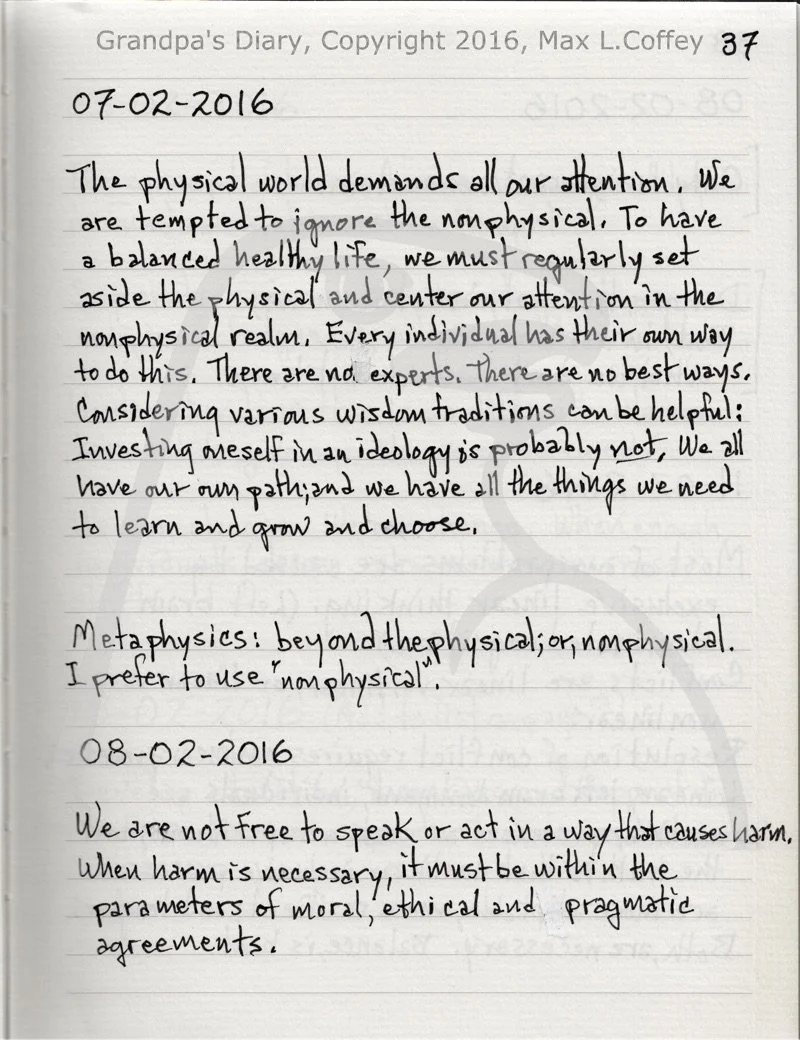 Grandpa's Diary, Copyright 2016, Max L.Coffey 37
07-02-2016
The physical world demands all our attention. We
are tempted to ignore the nonphysical. To have
a balanced healthy life, we must regularly set
aside the physical and center our attention in the
nonphysical realm. Every individual has their own way
to do this. There are no experts. There are no best ways.
Considering various wisdom traditions can be helpful:
Investing oneself in an ideology is probably not. We all
have our own path; and we have all the things we need
to learn and grow and choose.
Metaphysics: beyond the physical; or, nonphysical.
I prefer to use "nonphysical".
08-02-2016
We are not free to speak or act in a way that causes harm.
When harm is necessary, it must be within the
parameters of moral, ethical and pragmatic
agreements.